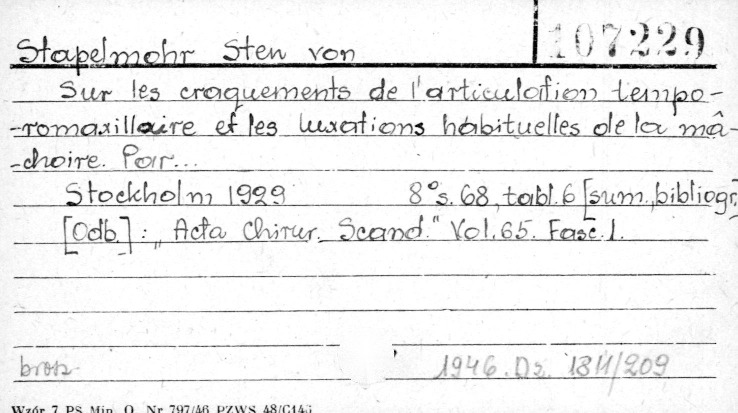 107229
Stapelmohr Sten von
Sur les craquements de l'articulation tempo-
-romaxillaire et les luxations habituelles de la mâ-
-choire. Par...
Stockholm 1929 8° s. 68, tabl. 6 [sum., bibliogr.
[Odb.]: „Acta Chirur. Scand." Vol. 65. Fasc. 1.
brosz. 1946. Dz. 1311/209
Wzór 7 PS Min. O. Nr 797/46 PZWS 48/C145